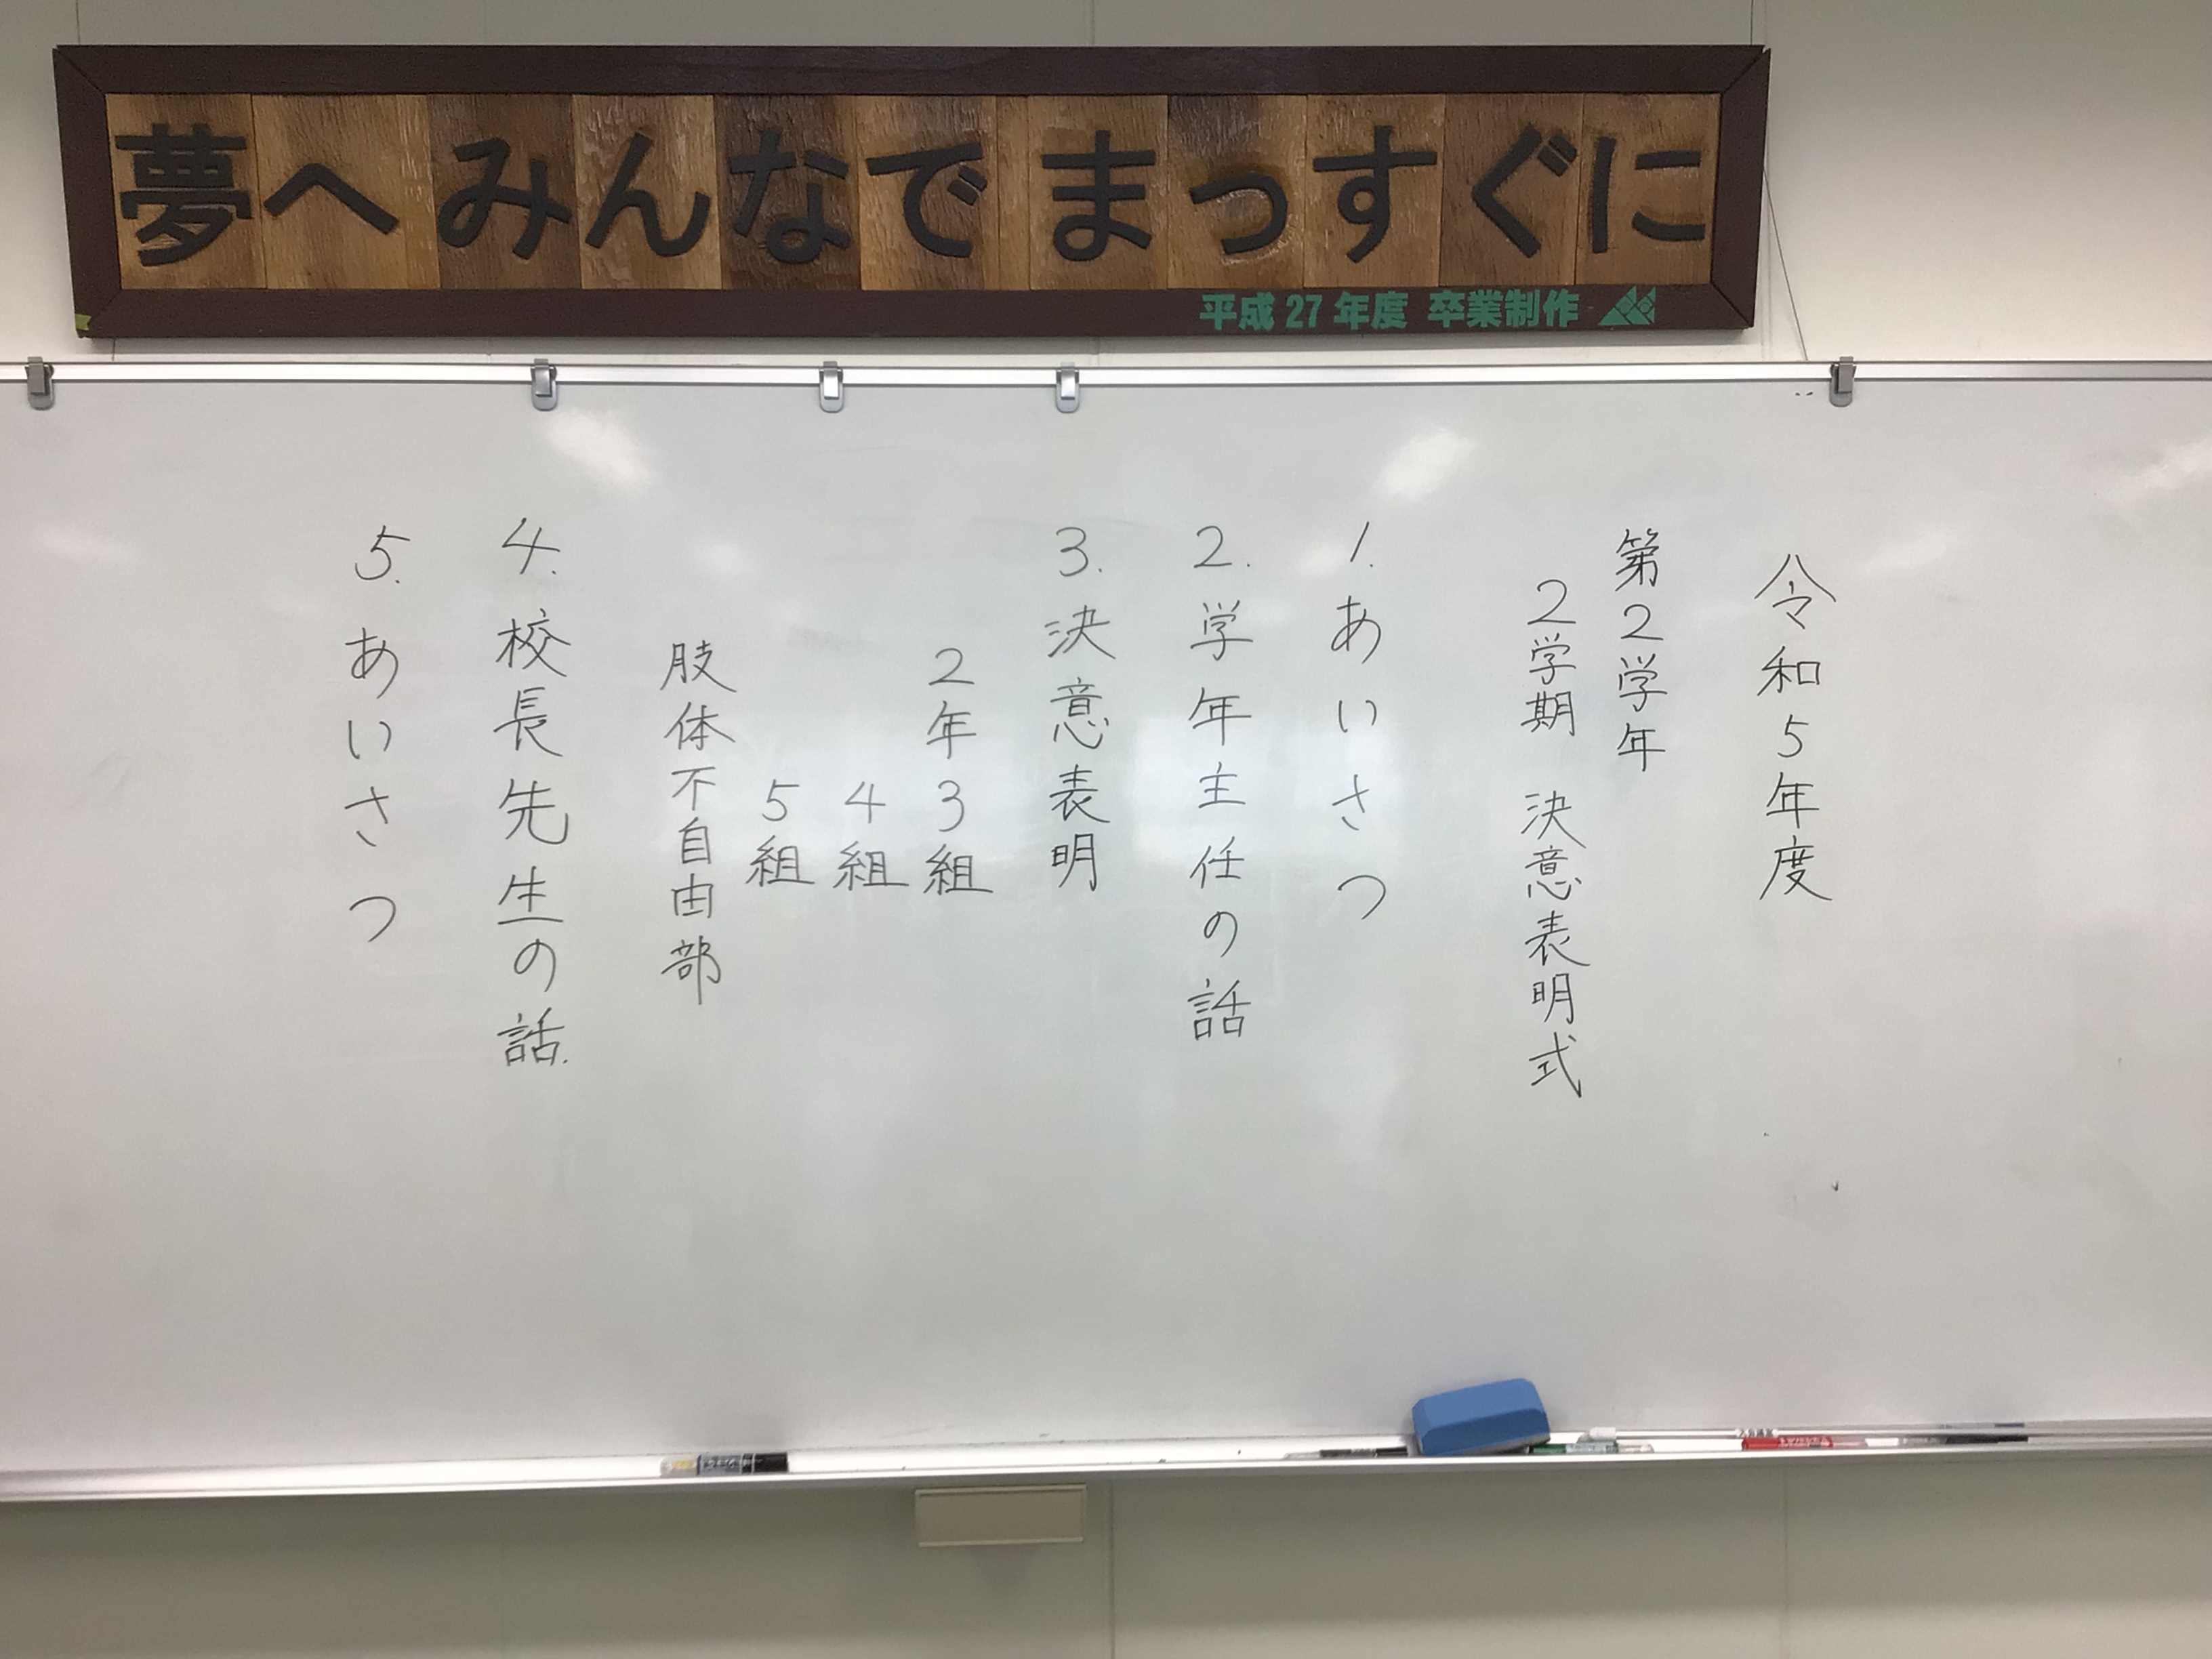 夢へみんなでまっすぐに
平成27年度 卒業制作
令和5年度
第2学年
2学期 決意表明式
1.あいさつ
2.学年主任の話
3.決意表明
2年3組
4組
5組
肢体不自由部
4.校長先生の話.
5.あいさつ